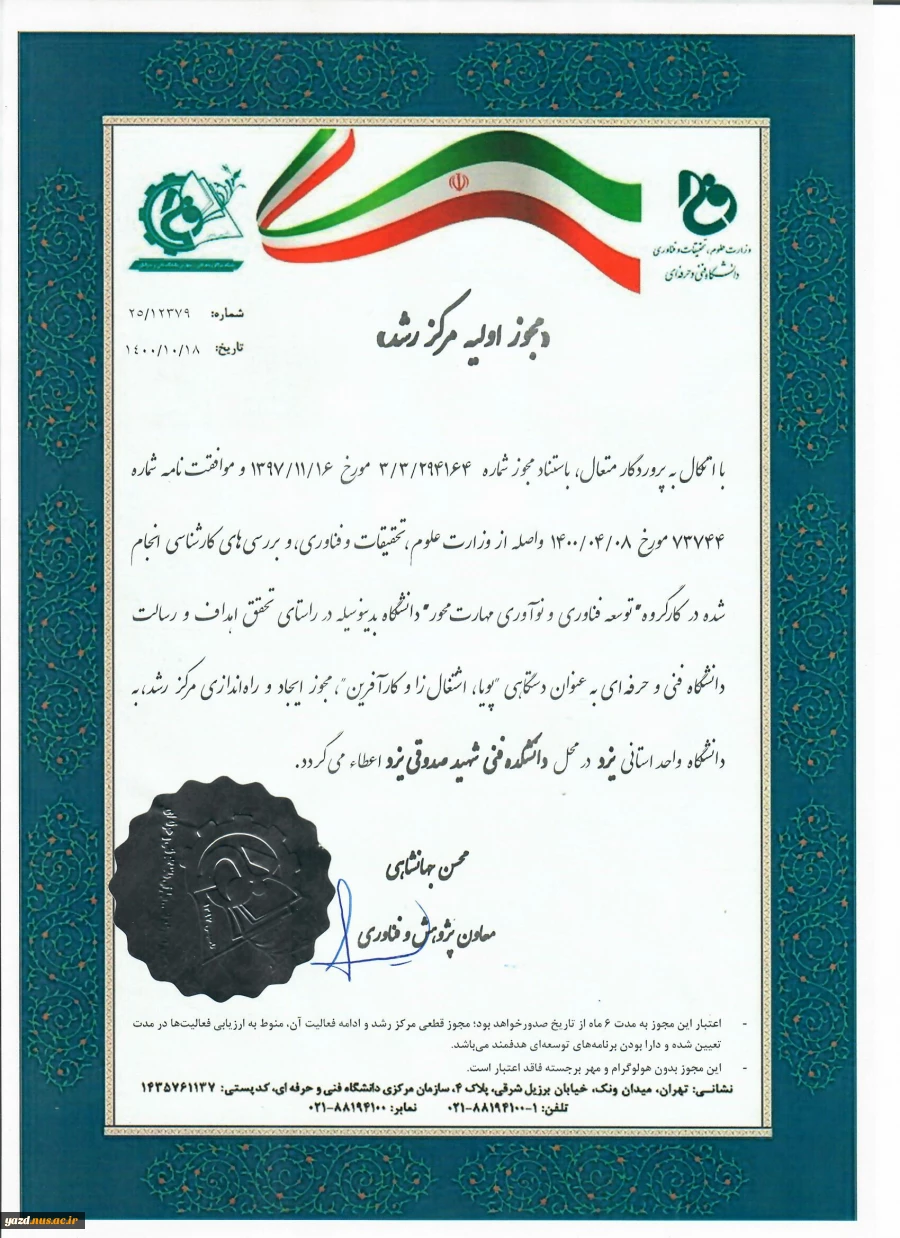 وزارت علوم، تحقیقات و فناوری
دانشگاه فنی و حرفه‌ای
شماره: ۲۵/۱۲۳۷۹
تاریخ: ۱۴۰۰/۱۰/۱۸
«مجوز اولیه مرکز رشد»
با اتکال به پروردگار متعال، باستناد مجوز شماره ۳/۳/۲۹۴۱۶۴ مورخ ۱۳۹۷/۱۱/۱۶ و موافقت نامه شماره
۷۳۷۴۴ مورخ ۱۴۰۰/۰۴/۰۸ واصله از وزارت علوم، تحقیقات و فناوری، و بررسی‌های کارشناسی انجام
شده در کارگروه "توسعه فناوری و نوآوری مهارت محور" دانشگاه بدینوسیله در راستای تحقق اهداف و رسالت
دانشگاه فنی و حرفه‌ای به عنوان دستگاهی "پویا، اشتغال زا و کارآفرین"، مجوز ایجاد و راه‌اندازی مرکز رشد، به
دانشگاه واحد استانی یزد در محل دانشکده فنی شهید صدوقی یزد اعطاء می گردد.
محسن جهانشاهی
معاون پژوهش و فناوری
- اعتبار این مجوز به مدت ۶ ماه از تاریخ صدور خواهد بود؛ مجوز قطعی مرکز رشد و ادامه فعالیت آن، منوط به ارزیابی فعالیت‌ها در مدت
تعیین شده و دارا بودن برنامه‌های توسعه‌ای هدفمند می‌باشد.
- این مجوز بدون هولوگرام و مهر برجسته فاقد اعتبار است.
نشانی: تهران، میدان ونک، خیابان برزیل شرقی، پلاک ۴، سازمان مرکزی دانشگاه فنی و حرفه ای، کدپستی: ۱۴۳۵۷۶۱۱۳۷
تلفن: ۱-۸۸۱۹۴۱۰۰-۰۲۱ نمابر: ۸۸۱۹۴۱۰۰-۰۲۱
yazd.nus.ac.ir